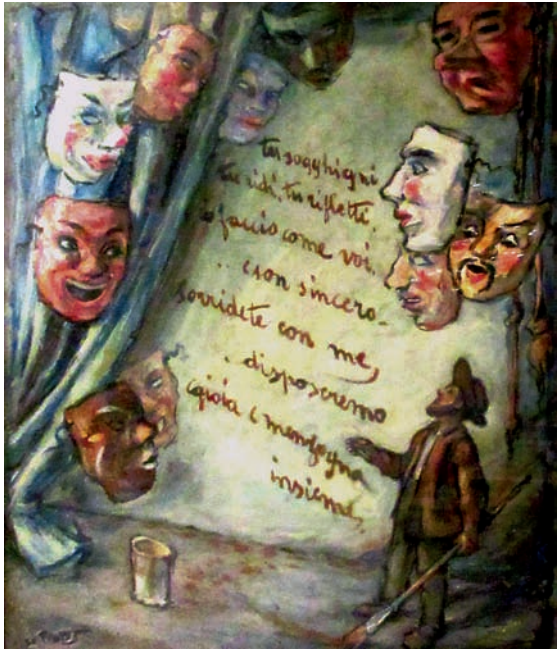 tu sogghigni
tu ridi, tu rifletti,
io faccio come voi,
.. e son sincero.
sorridete con me,
. disposeremo
gioia e menzogna
insieme,